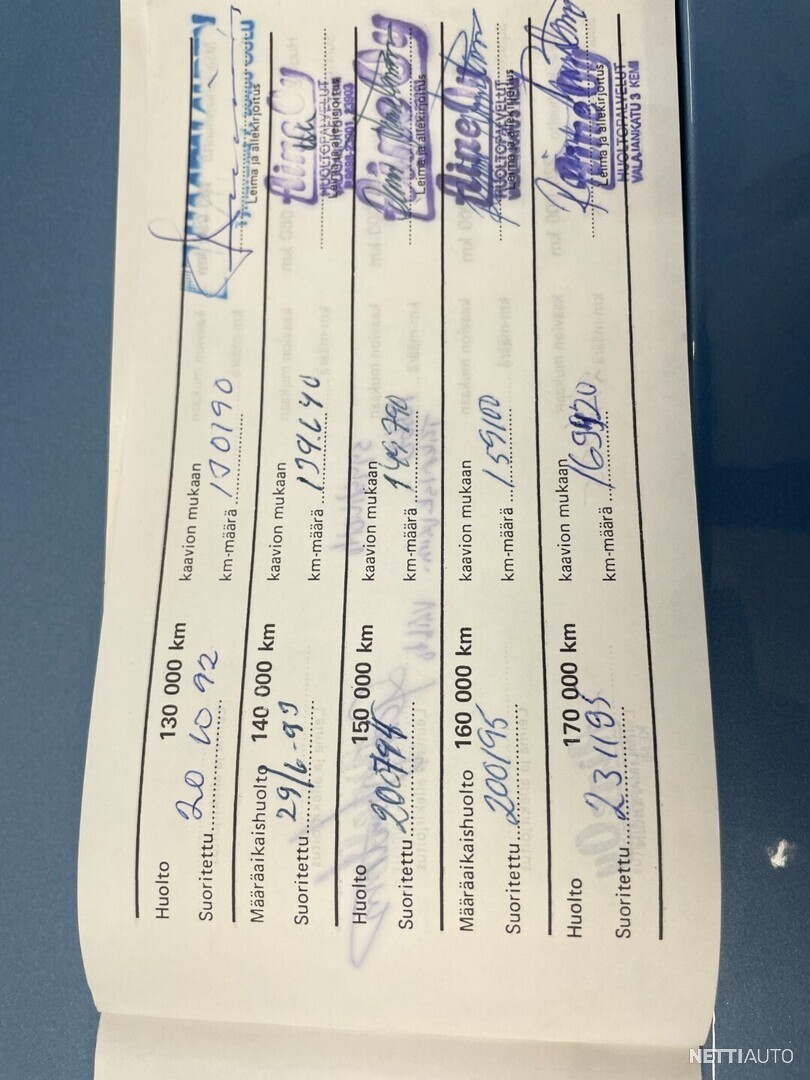 Huolto 130 000 km kaavion mukaan
Suoritettu 20 10 92 km-määrä 130190 Leima ja allekirjoitus
Määräaikaishuolto 140 000 km kaavion mukaan
Suoritettu 29/6-93 km-määrä 139640 Leima ja allekirjoitus
HUOLTOPALVELUT
Huolto 150 000 km kaavion mukaan
Suoritettu km-määrä 149790 Leima ja allekirjoitus
Määräaikaishuolto 160 000 km kaavion mukaan
Suoritettu km-määrä 159100 Leima ja allekirjoitus
HUOLTOPALVELUT
Huolto 170 000 km kaavion mukaan
Suoritettu 231195 km-määrä Leima ja allekirjoitus
HUOLTOPALVELUT
VALAJANKATU 3 KEMI
NETTIAUTO